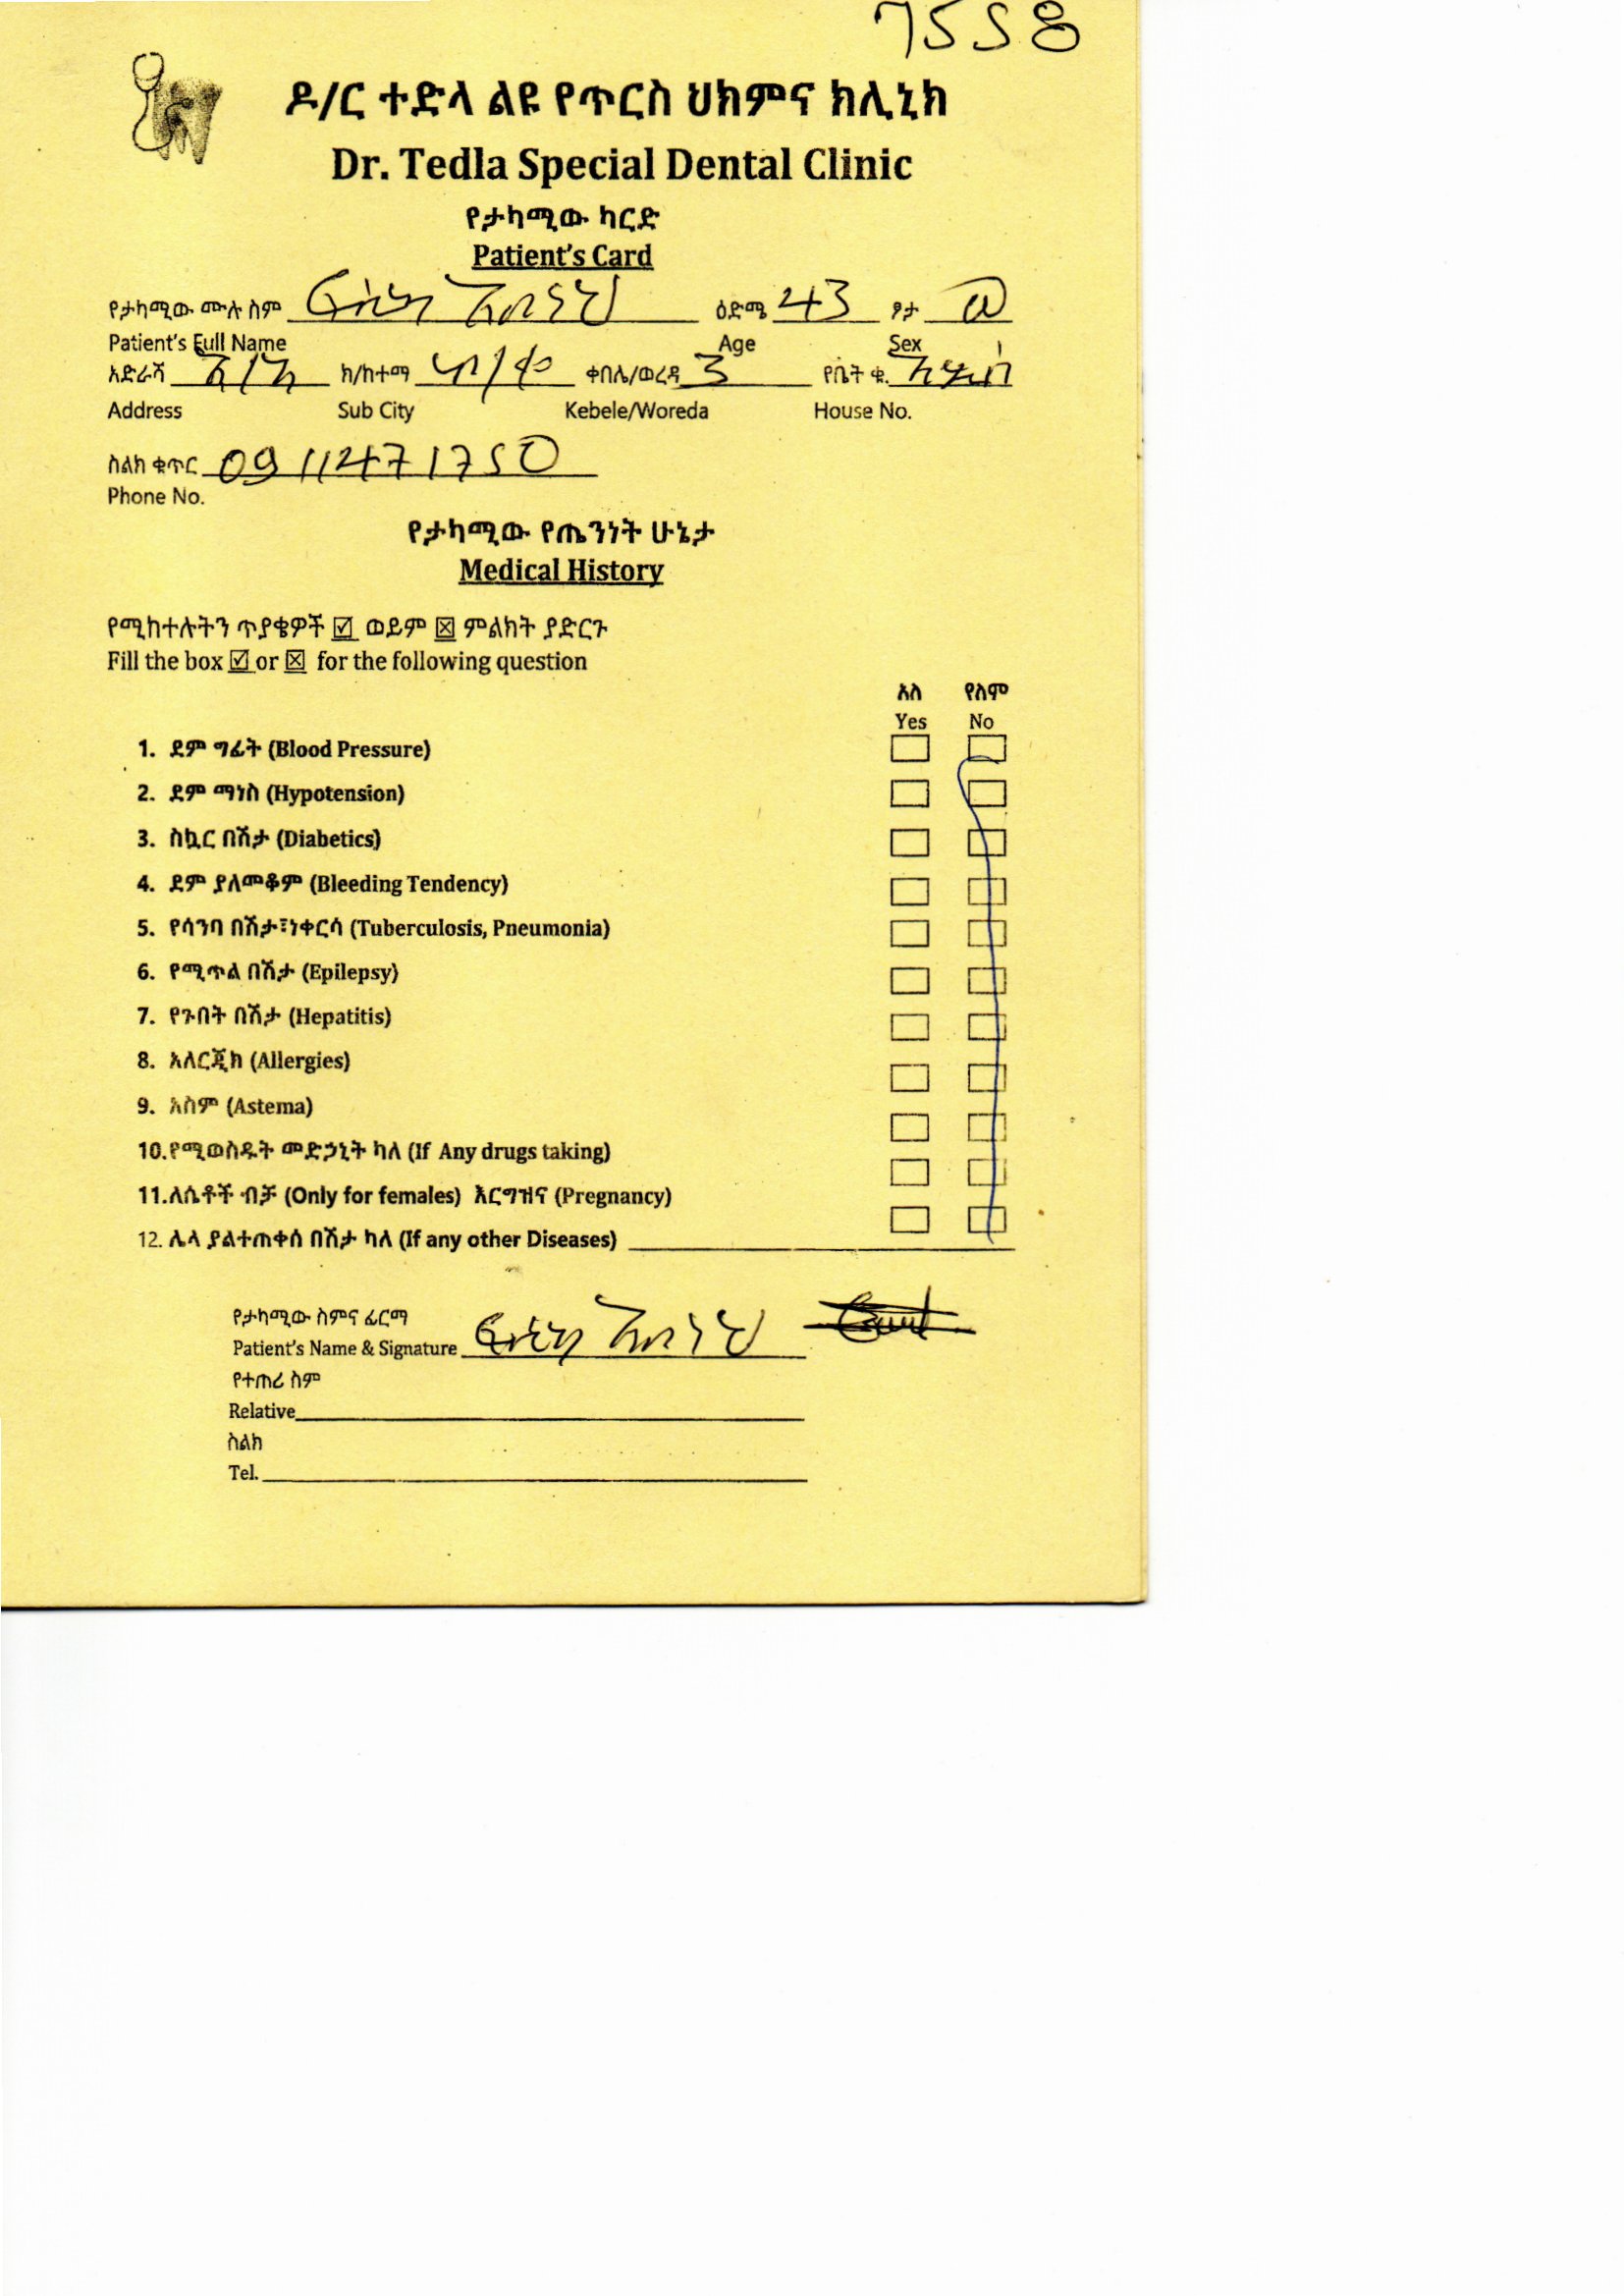 7558
ዶ/ር ተድላ ልዩ የጥርስ ህክምና ክሊኒክ
Dr. Tedla Special Dental Clinic
የታካሚው ካርድ
Patient's Card
የታካሚው ሙሉ ስም ዕድሜ 43 ፆታ ወ
Patient's Full Name Age Sex
አድራሻ አ/አ ክ/ከተማ ቀበሌ/ወረዳ 3 የቤት ቁ.
Address Sub City Kebele/Woreda House No.
ስልክ ቁጥር 0911471750
Phone No.
የታካሚው የጤንነት ሁኔታ
Medical History
የሚከተሉትን ጥያቄዎች ☑ ወይም ☒ ምልክት ያድርጉ
Fill the box ☑ or ☒ for the following question
አለ የለም
Yes No
1. ደም ግፊት (Blood Pressure)
2. ደም ማነስ (Hypotension)
3. ስኳር በሽታ (Diabetics)
4. ደም ያለመቆም (Bleeding Tendency)
5. የሳንባ በሽታ፣ነቀርሳ (Tuberculosis, Pneumonia)
6. የሚጥል በሽታ (Epilepsy)
7. የጉበት በሽታ (Hepatitis)
8. አለርጂክ (Allergies)
9. አስም (Astema)
10.የሚወስዱት መድኃኒት ካለ (If Any drugs taking)
11.ለሴቶች ብቻ (Only for females) እርግዝና (Pregnancy)
12. ሌላ ያልተጠቀሰ በሽታ ካለ (If any other Diseases)
የታካሚው ስምና ፊርማ
Patient's Name & Signature
የተጠሪ ስም
Relative
ስልክ
Tel.